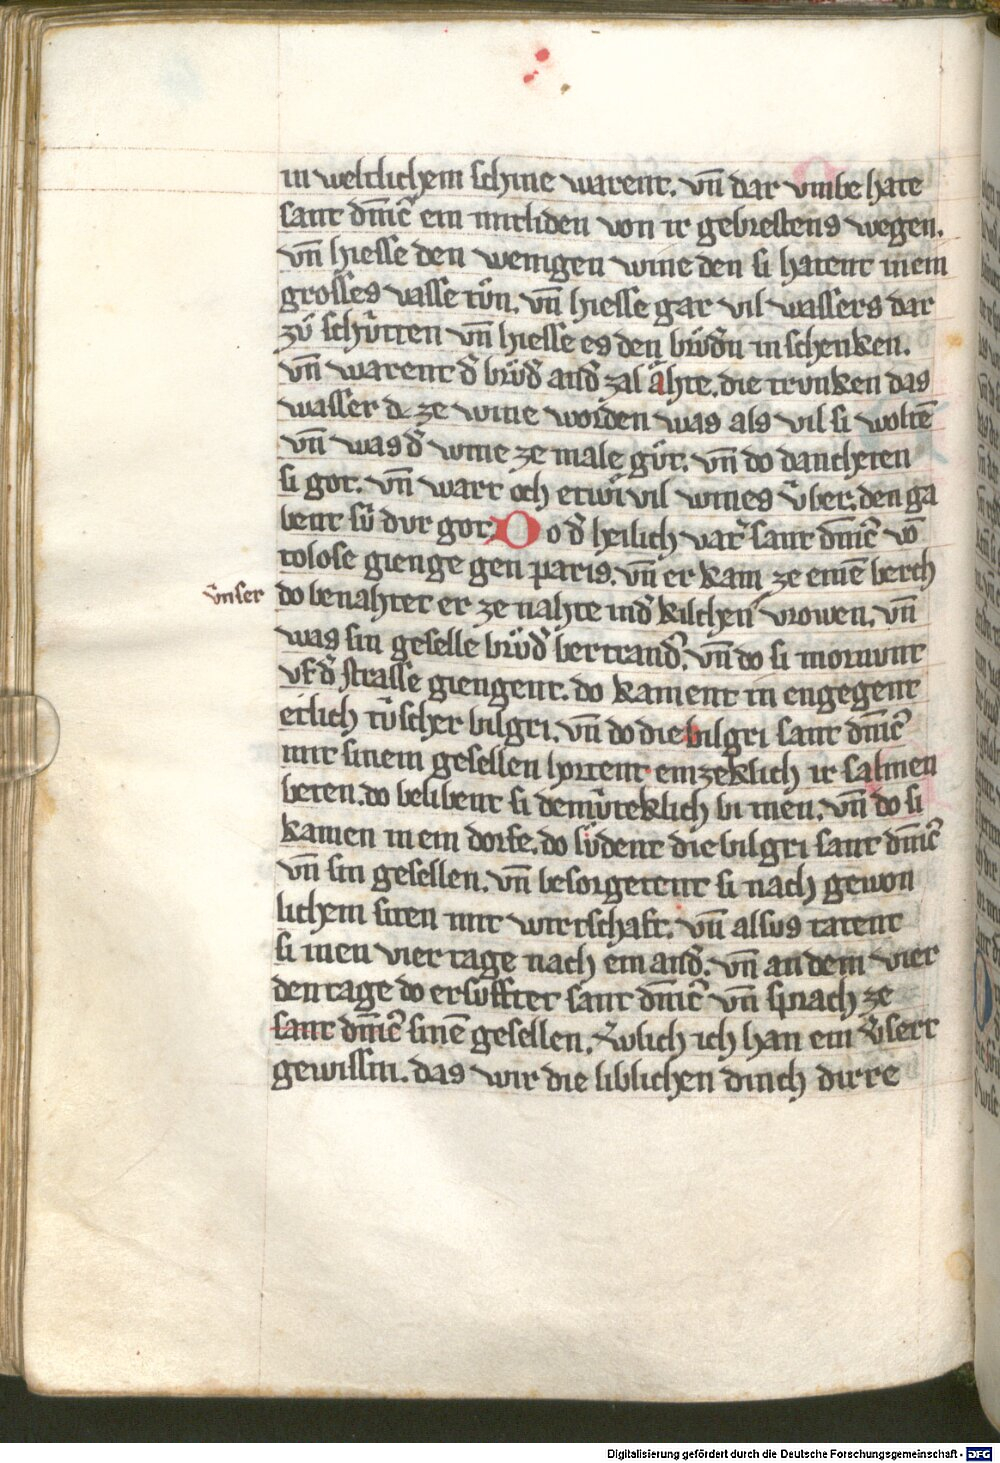 in weltlichem schine warent. vn̄ dar vmbe hate
sant dm̄ic̄ ein mitliden von ir gebrestens wegen.
vn̄ hiesse den wenigen wine den si hatent in em
grosses vasse tůn. vn̄ hiesse gar vil wassers dar
zů schůtten vn̄ hiesse es den brůdn in schenken.
vn̄ warent d̄ brůd̄ and̄ zal ähte. die trvnken das
wasser dc ze wine worden was als vil si woltē
vn̄ was d̄ wine ze male gůt. vn̄ do dancheten
si got. vn̄ wart och etwi vil wines v̊ber. den ga
bent sů dvr got. Do d̄ heilich vat̄ sant dm̄ic̄ vō
tolose gienge gen paris. vn̄ er kam ze einē berch
vnser
do benahtet er ze nahte ind̄ kilchen vrowen. vn̄
was sin geselle brůd̄ bertrand̄. vn̄ do si mornunt
vf d̄ strasse giengent. do kament in engegent
etlich tůscher bilgri. vn̄ do die bilgri sant dm̄ic̄
mit sinem gesellen hortent einzeklich ir salmen
beten. do belibent si demůteklich bi inen. vn̄ do si
kamen in ein dorfe. do lůdent die bilgri sant dm̄ic̄
vn̄ sin gesellen. vn̄ besorgetent si nach gewon
lichem siten mit wirtschaft. vn̄ alsus tatent
si inen vier tage nach ein and̄. vn̄ an dem vier
den tage do ersůffzet sant dm̄ic̄ vn̄ sprach ze
sant dm̄ic̄ sinē gesellen. wlich ich han ein v̊sert
gewissin. das wir die liblichen dinch dirre
Digitalisierung gefördert durch die Deutsche Forschungsgemeinschaft - DFG